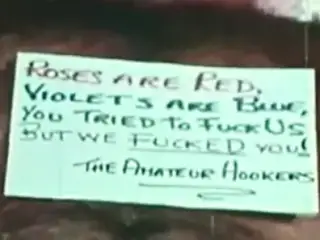 ROSES ARE RED,
VIOLETS ARE BLUE,
YOU TRIED TO FUCK US
BUT WE FUCKED YOU!
THE AMATEUR HOOKERS